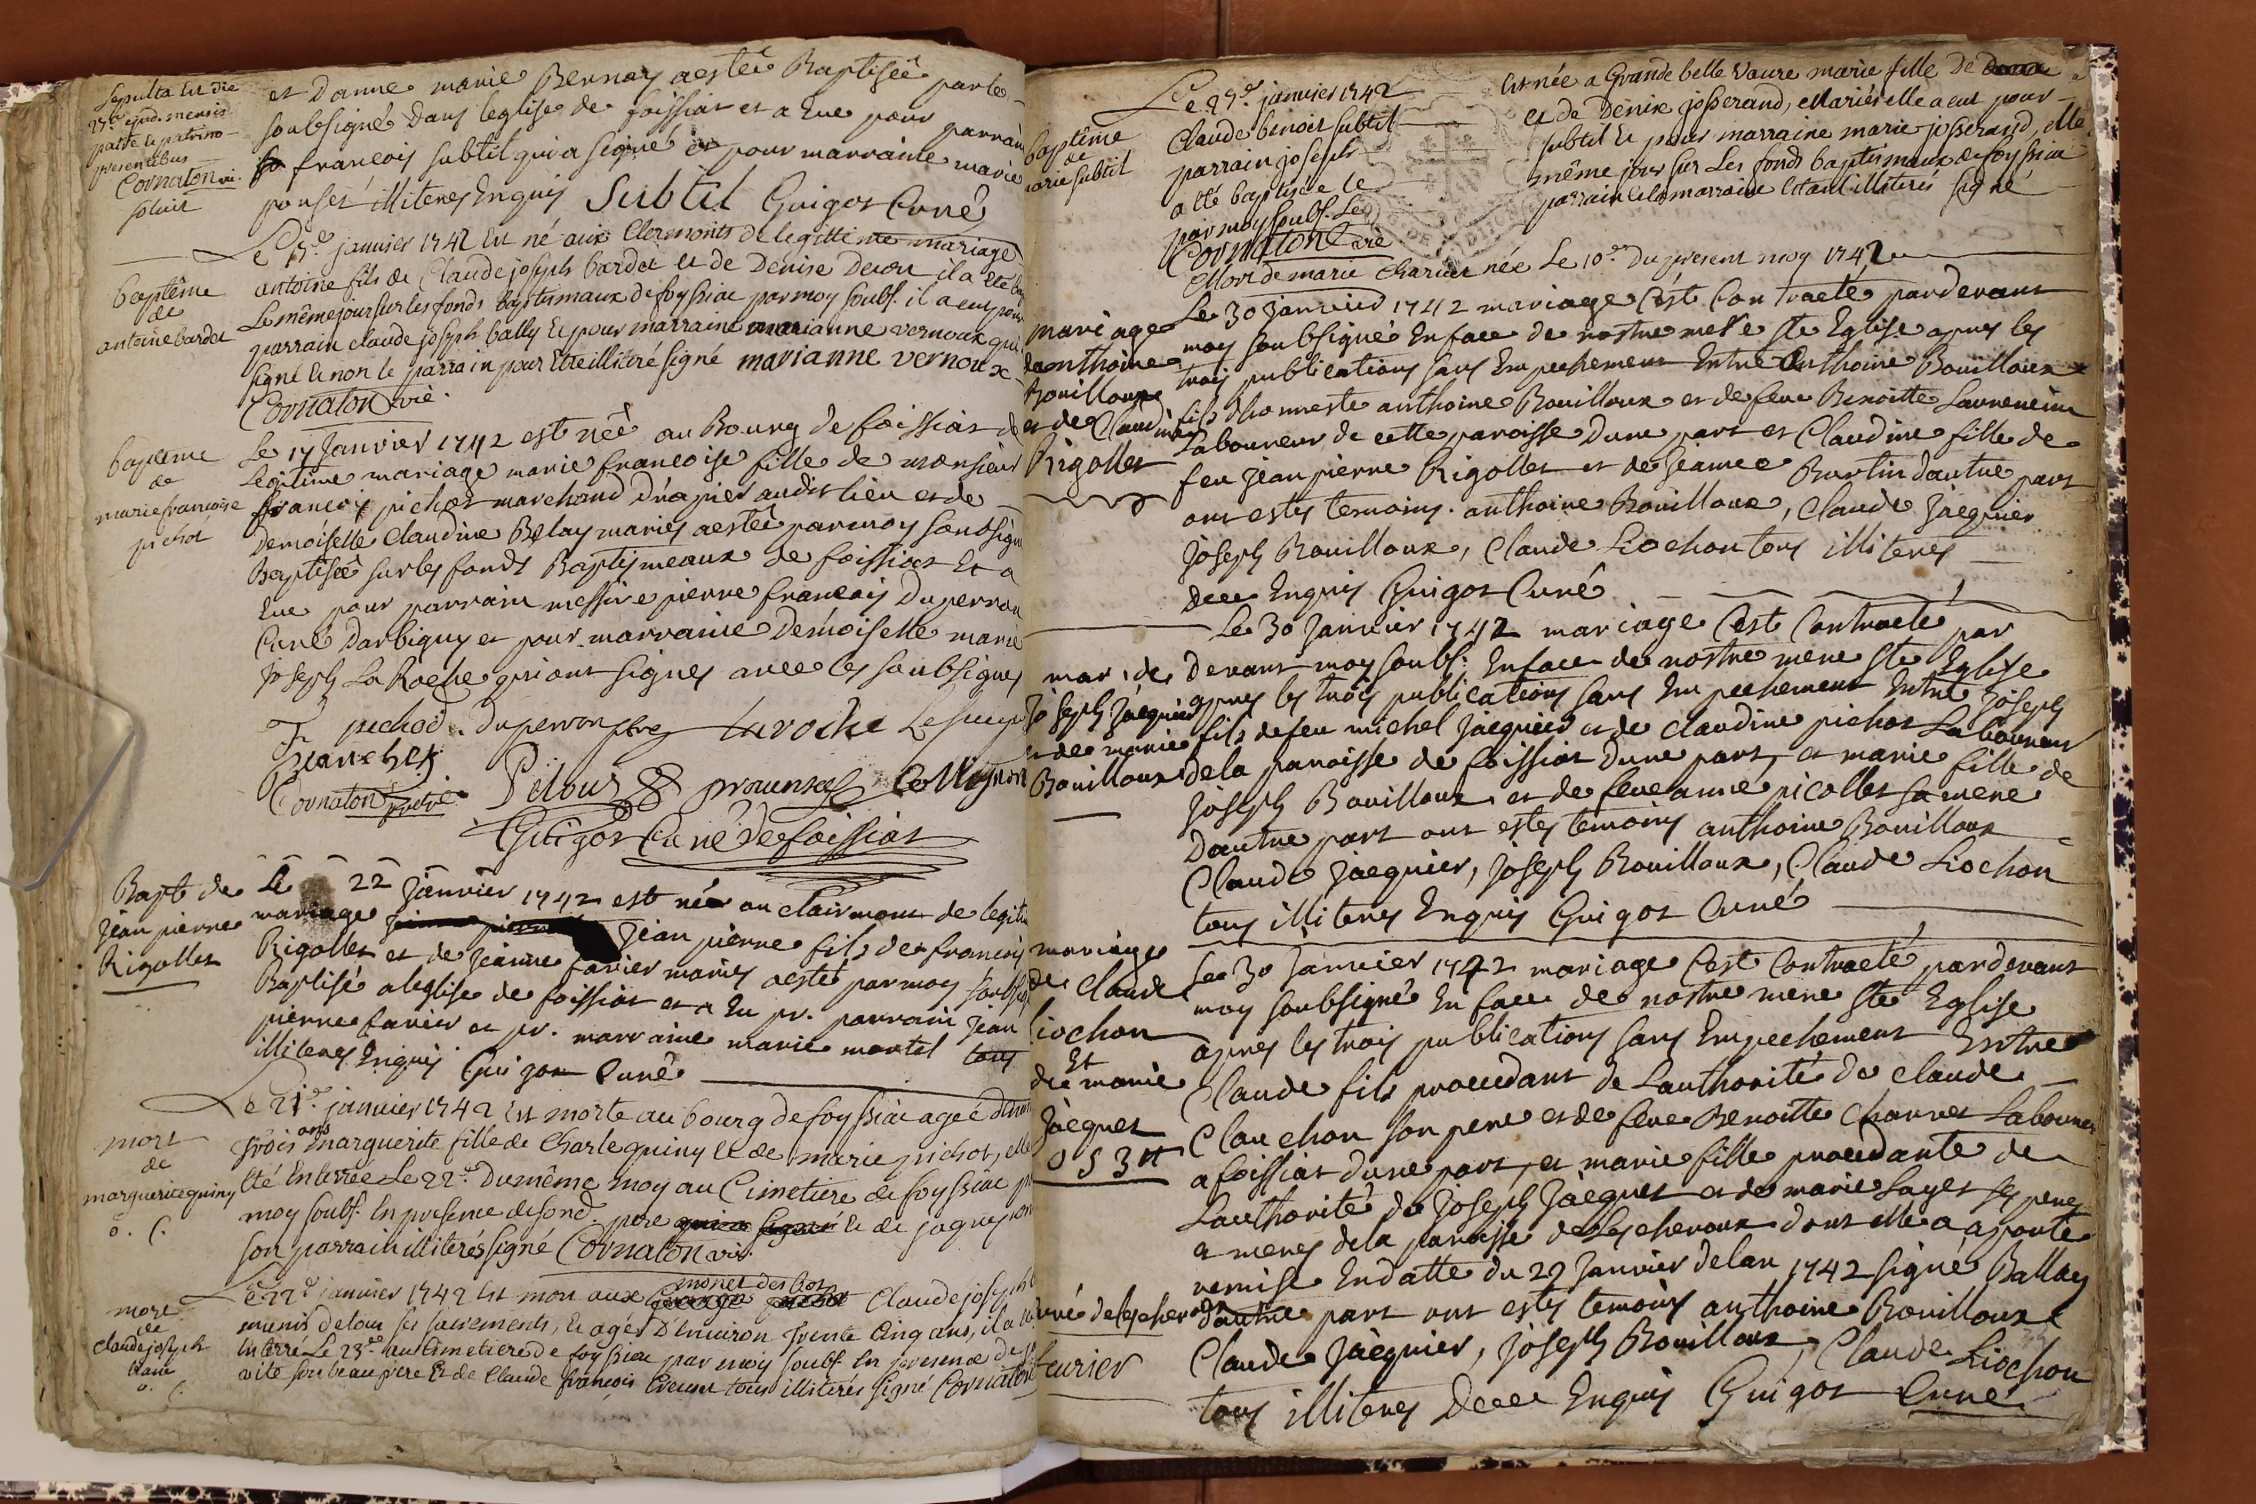 Sepulta est die
27ª ejusd. mensis
patre et patrino
presentibus
Cornaton vic.
soluit
et Danne marie Bernay aestée Baptiseé par le
soubsigné Dans leglise de foissiat et a Eue pour parrain
francois subtil qui a signé et pour marraine marie
ponset illiteres Enquis Subtil Guigot Curé
Le janvier 1742 Est né aux Clermonts de legittime mariage
baptême
de
antoine bardet
antoine fils de Claude joseph bardet et de Denise Decou il a été
Le même jour sur les fonds baptismaux de foyssiac par moy soubs. il a eut pour
parrain claude joseph bally et pour marraine marianne vernoux qui
signé et non le parrain pour être illiteré signé marianne vernoux
Cornaton vic.
baptême
de
marie francoise
pichod
Le 17 Janvier 1742 est neé au Bourg de foissiat de
Legitime mariage marie francoise fille de monsieur
francois pichod marchand drapier audit lieu et de
Demoiselle Claudine Belay mariés aesteé par moy soubsigné
Baptiseé sur les fonds Baptismeaux de foissiat Et a
Eue pour parrain messire pierre francois Duperron
Curé Darbigny et pour marraine Demoiselle marie
joseph La Roche qui ont signés avec les soubsignés
pichod Duperron ptre Laroche
Franchet
Cornaton vic Pelouz provensal Collignon
Guigot Curé de foissiat
Bapt de
jean pierre
Rigollet
Le 22 janvier 1742 est né au Clairmont de legit
mariage jean pierre fils de francois
Rigollet et de jeanne favier mariés aesté par moy soubsig
Baptisé a leglise de foissiat et a Eu pr. parrain jean
pierre favier et pr. marraine marie martel tous
illiteres Enquis Guigot Curé
Le 21e janvier 1742 Est morte au bourg de foyssiac ageé d'env
mort
de
marguerite quiny
o. C.
trois ans marguerite fille de Charle quiny et de marie pichot, elle
été Enterrée Le 22e Du même moy au Cimetiere de foyssiac p
moy soubs. En presence de sond pere qui a signé et de jaques
son parrain illiterés signé Cornaton vic.
mort
de
claude joseph
o. C.
Le 22e janvier 1742 Est mort aux monet des bois Claude joseph
munis de tous ses sacrements, Et agés D'Environ trente Cinq ans, il a été
Enterré Le 23e au Cimetiere de foyssiac par moy soubs. En presence de
son beau pere Et de Claude francois tous illiterés signé Cornaton
baptême
de
marie subtil
Le 27e janvier 1742 Est née a Grande belle vaure marie fille de
Claude benoit subtil et de Denise josserand, Mariés elle a eut pour
parrain joseph subtil Et pour marraine marie josserand, elle
a été baptisée le même jour sur Les fonds baptismaux de foyssiac
par moy soubs. Le parrain et la marraine Etant illiterés signé
Cornaton vic
Mort de marie Charvet née Le 10e Du present moy 1742
mariage
de anthoine
Bouilloux
et de Claudine
Rigollet
Le 30 janvier 1742 mariage C'est Contracté pardevant
moy soubsigné En face de nostre mere ste Eglise apres les
trois publications sans Empechement Entre Anthoine Bouilloux
fils d'honneste anthoine Bouilloux et de feue Benoitte Laurencin
Laboureur de cette paroisse Dune part et Claudine fille de
feu jean pierre Rigollet et de jeanne Burtin dautre part
ont estes temoins anthoine Bouilloux, Claude Jacquier
joseph Bouilloux, Claude Liochon tous illiteres
Enquis Guigot Curé
Le 30 Janvier 1742 mariage C'est Contracté par
mar. de
joseph jacquier
et de marie
Bouilloux
devant moy soubs. En face de nostre mere ste Eglise
apres les trois publications sans Empechement Entre joseph
fils de feu michel Jacquier et de claudine pichot Laboureur
de la paroisse de foissiat Dune part, et marie fille de
joseph Bouilloux et de feue anne picollet sa mere
Dautre part ont estes temoins anthoine Bouilloux
Claude jacquier, joseph Bouilloux, Claude Liochon
tous illiteres Enquis Guigot Curé
mariage
de Claude
Liochon
Et
de marie
jacquet
Le 30 Janvier 1742 mariage C'est Contracté pardevant
moy soubsigné En face de nostre mere ste Eglise
apres les trois publications sans Empechement Entre
Claude fils procedant de Lauthorité de claude
Clauchon son pere et de feue Benoitte Charvet Laboureur
a foissiat Dune part, et marie fille procedante de
Lauthorité de Joseph jacquet et de marie Sayet ses peres
a meres de la paroisse de Lescheroux dont elle a aporté
remise En datte du 29 Janvier de lan 1742 signé Ballay
curé de Lescheroux dautre part ont estes temoins anthoine Bouilloux
Claude Jacquier, joseph Bouilloux, Claude Liochon
tous illiteres Enquis Guigot Curé
feurier